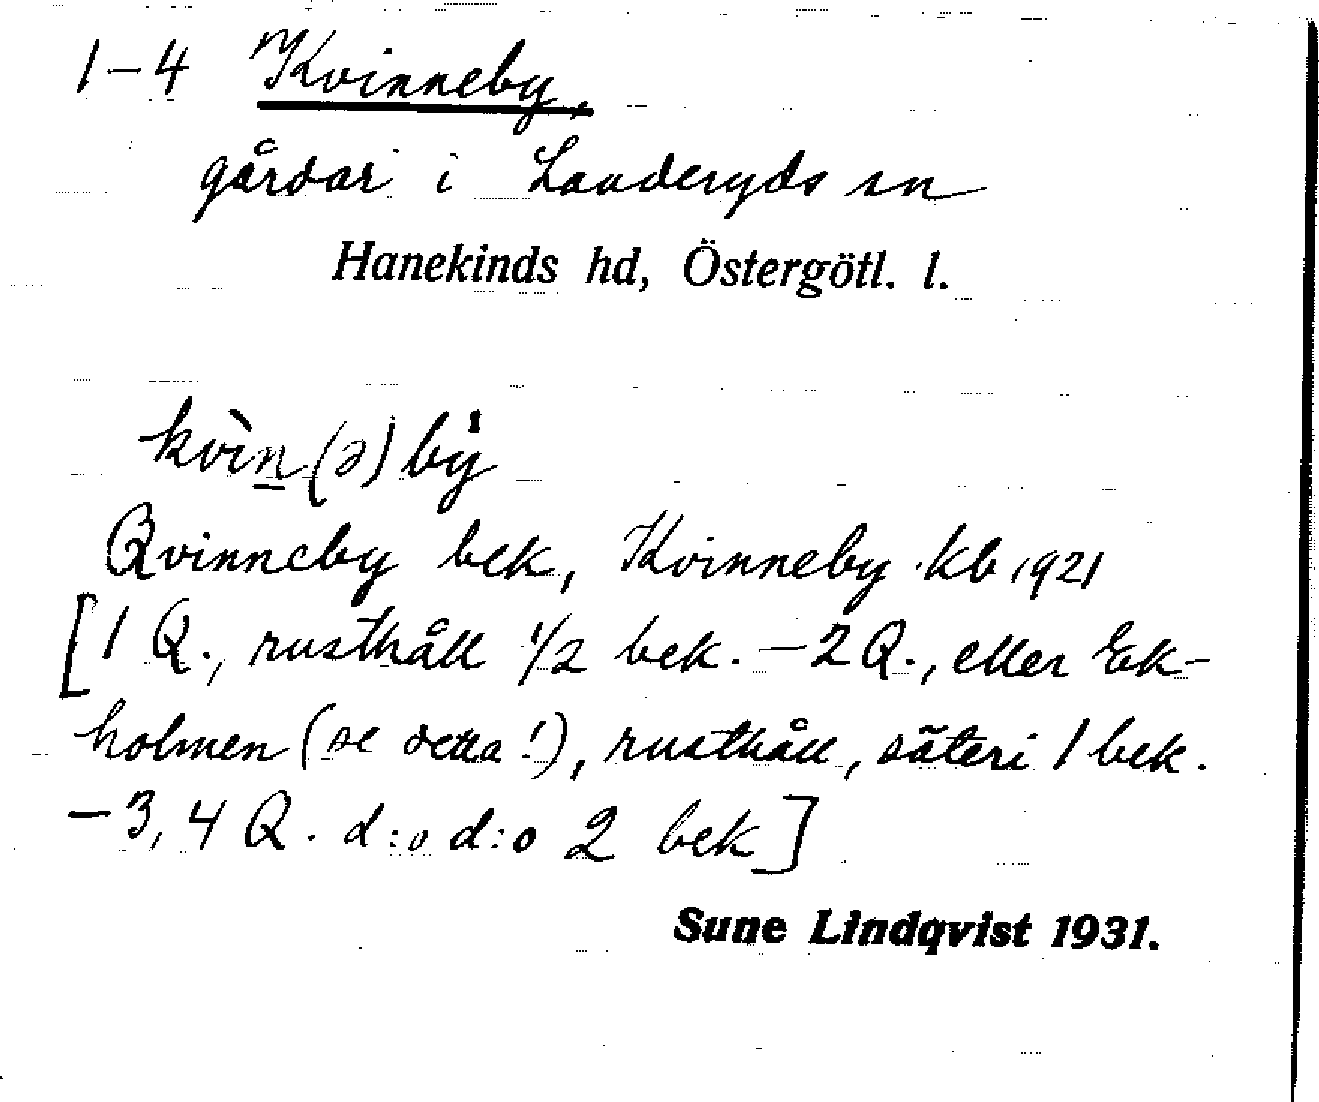 1–4 Kvinneby,
gårdar i Landeryds sn
Hanekinds hd, Östergötl. l.
kvìn(ə)bẏ
Qvinneby bek, Kvinneby kb 1921
[1 Q., rusthåll 1/2 bek. – 2 Q., eller Ek-
holmen (se detta!), rusthåll, säteri 1 bek.
– 3, 4 Q. d:o d:o 2 bek]
Sune Lindqvist 1931.